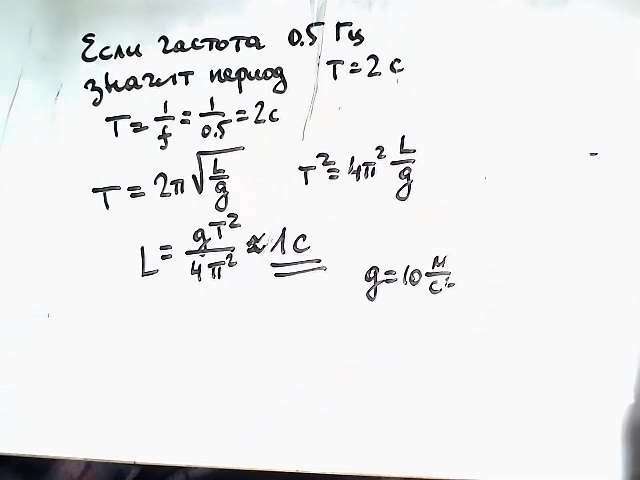 Если частота 0.5 Гц
значит период T = 2 c
T = 1/f = 1/0.5 = 2c
T = 2π√(L/g) T² = 4π² L/g
L = gT²/4π² ≈ 1 c
g = 10 м/с²